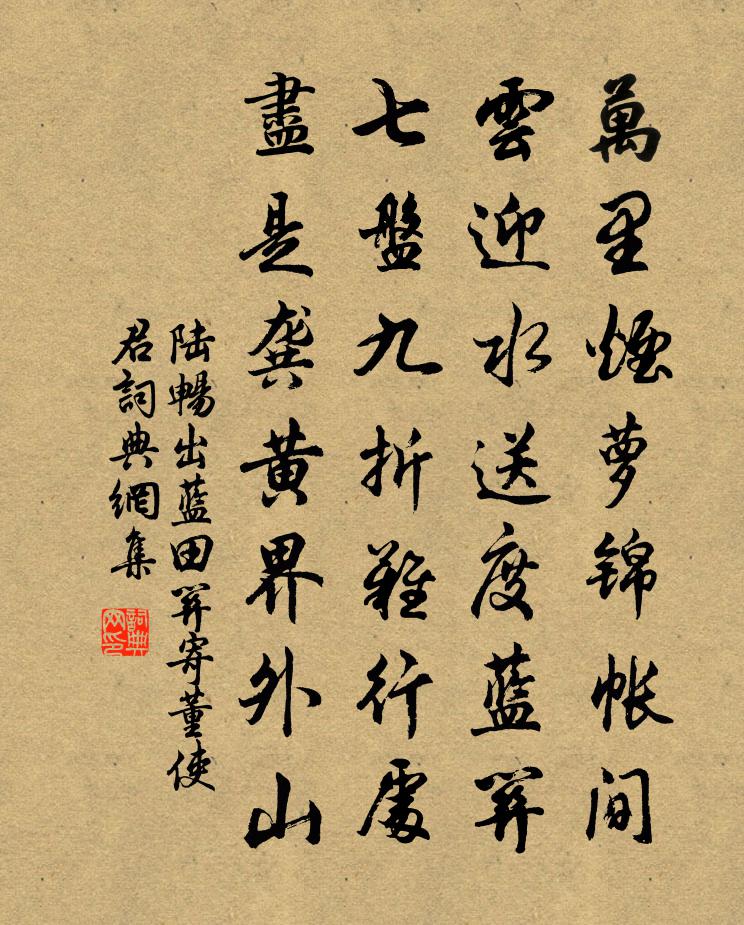 萬里煙萝錦帳間
雲迎水送度藍關
七盤九折難行處
盡是龔黄界外山
陸暢出藍田關寄董使
君詞典網集
詞典
网印